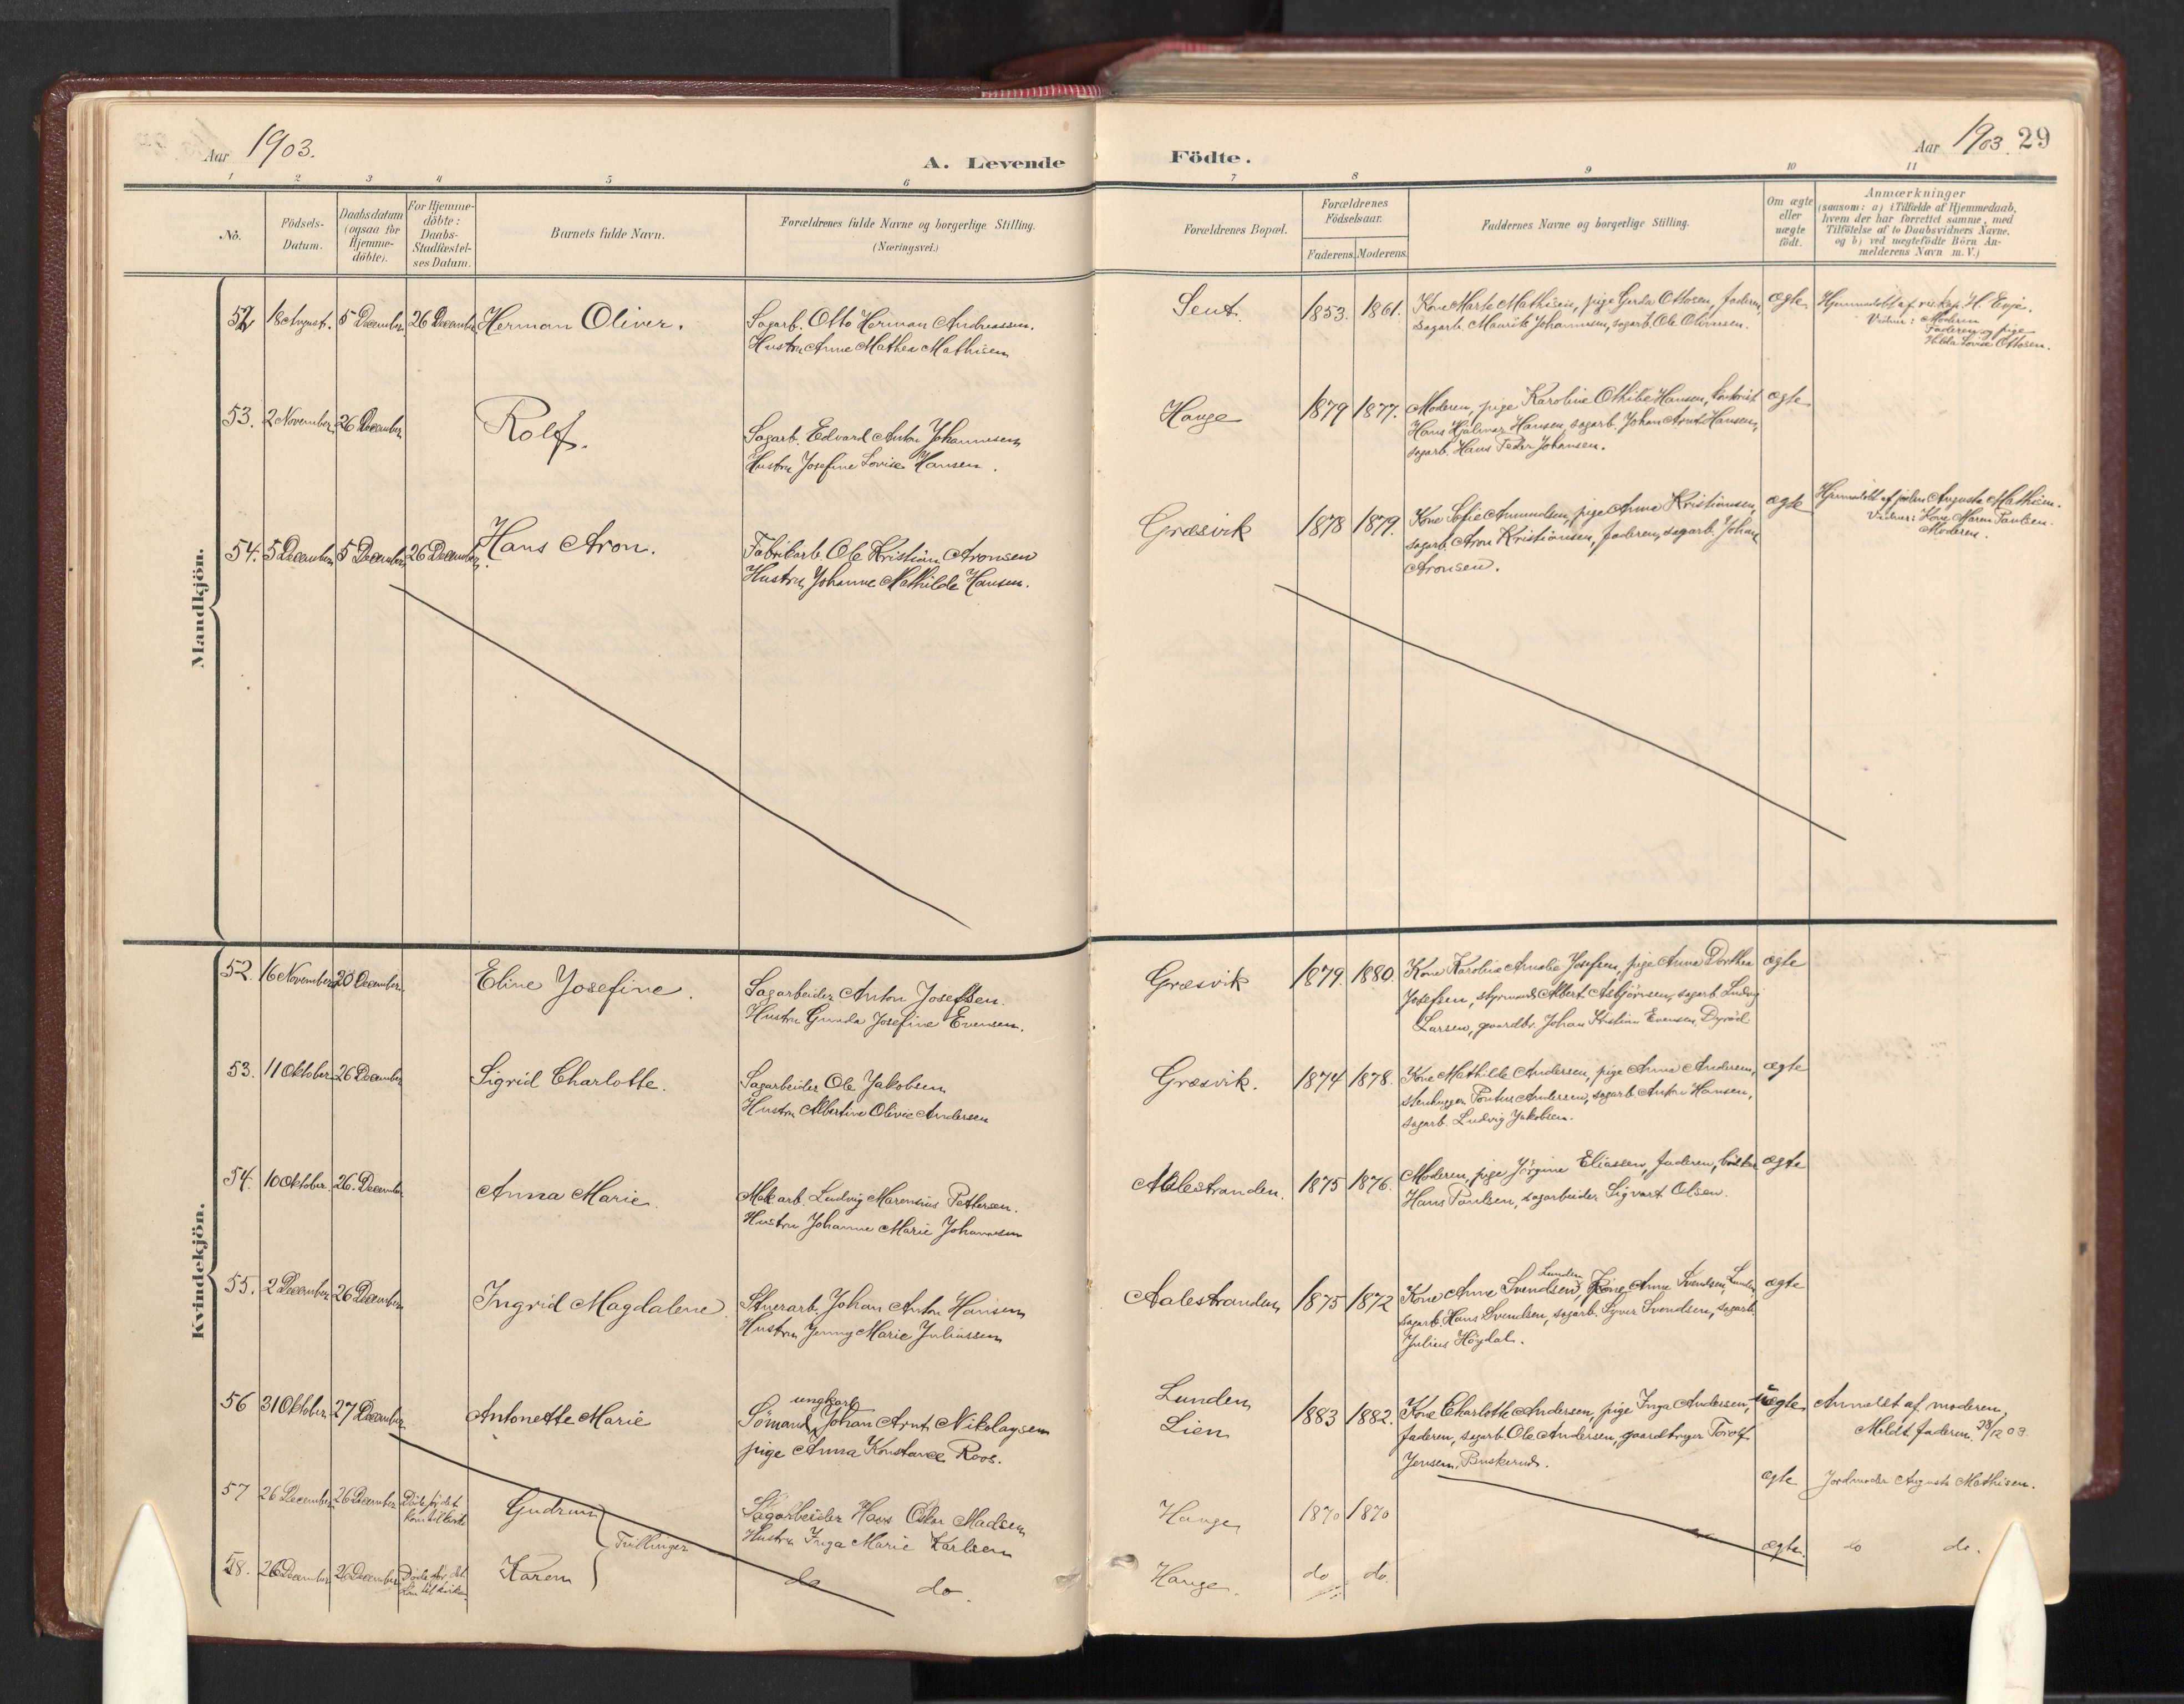 Aar 1903.
A. Levende Födte.
Aar 1903. 29
1 2 3 4 5 6 7 8 9 10 11
No.
Födsels-
Datum.
Daabsdatum
(ogsaa for
Hjemme-
döbte).
For Hjemme-
döbte:
Daabs-
Stadfæstel-
ses Datum.
Barnets fulde Navn.
Forældrenes fulde Navne og borgerlige Stilling.
(Næringsvei.)
Forældrenes Bopæl.
Forældrenes
Födselsaar.
Faderens. Moderens.
Faddernes Navne og borgerlige Stilling.
Om ægte
eller
uægte
födt.
Anmærkninger
(saasom: a) i Tilfælde af Hjemmedaab,
hvem der har forrettet samme, med
Tilföielse af to Daabsvidners Navne.
og b) ved uægtefödte Börn An-
melderens Navn m. V.)
Mandkjön.
52 18 August. 5 December 26 December Herman Oliver.
Sagarb. Otto Herman Andreassen.
Hustru Anne Mathea Mathisen
Seut. 1853. 1861.
Kone Marte Mathisen, pige Gerda Ottosen, faderen,
sagarb. Mauritz Johannesen, sagarb. Ole Olavesen.
ægte
Hjemmedöbt af H. Evje.
Vidner: Moderen
Faderen og pige
Hilda Lovise Ottosen.
53. 2 November 26 December Rolf.
Sagarb. Edvard Anton Johannesen
Hustru Josefine Lovise Hansen.
Hauge 1879 1877.
Moderen, pige Karoline Othilie Hansen,
Hans Hjalmar Hansen, sagarb. Johan Arnt Hansen,
sagarb. Hans Peder Johansen.
ægte
54. 5 December 5 December 26 December Hans Aron.
Fabrikarb. Ole Kristian Aronsen
Hustru Johanne Mathilde Hansen.
Græsvik 1878 1879.
Kone Sofie Amundsen, pige Anna Kristiansen,
sagarb. Aron Kristiansen, faderen, sagarb. Johan
Aronsen.
ægte
Hjemmedöbt af jordm. Augusta Mathisen.
Vidner: Kone Maren Paulsen.
Moderen.
Kvindekjön.
52. 16 November 20 December. Eline Josefine.
Sagarbeider Anton Josefsen.
Hustru Gunda Josefine Evensen.
Græsvik 1879. 1880.
Kone Karoline Amalie Josefsen, pige Anna Dorthea
Josefsen, styrmand Albert Asbjörnsen, sagarb. Ludvig
Larsen, gaardbr. Johan Kristian Evensen, Dyröd
ægte
53. 11 Oktober 26 December Sigrid Charlotte.
Sagarbeider Ole Jakobsen
Hustru Albertine Olivie Andersen
Græsvik. 1874 1878.
Kone Mathilde Andersen, pige Anna Andersen,
stenhugger Pontus Andersen, sagarb. Anton Hansen,
sagarb. Ludvig Jakobsen.
ægte
54. 10 Oktober. 26. December Anna Marie.
Mek arb. Ludvig Marensius Pettersen.
Hustru Johanne Marie Johannesen
Alestranden. 1875 1876.
Moderen, pige Jörgine Eliassen, faderen,
Hans Paulsen, sagarbeider Sigvart Olsen.
ægte
55. 2 December 26 December Ingrid Magdalene.
Stuerarb. Johan Anton Hansen
Hustru Jenny Marie Juliussen
Aalestranden 1875 1872
Lunden
Kone Anne Svendsen, Kone Anne Svendsen, Lunden,
sagarb. Hans Svendsen, sagarb. Syver Svendsen, sagarb.
Julius Höydal.
ægte
56 31 Oktober 27 December Antonette Marie
ungkarl
Sömand Johan Arnt Nikolaysen
pige Anna Konstance Roos.
Lunden
Lien
1883 1882.
Kone Charlotte Andersen, pige Inga Andersen,
faderen, sagarb. Ole Andersen, gaardbruger Torolf
Jensen, Buskerud.
uægte
Anmeldt af moderen.
Meldt faderen 28/12 03
57 26 December 26 December Döde för det
kom til kirke
Gudrun
Trillinger
Sagarbeider Hans Oskar Madsen
Hustru Inga Marie Karlsen
Hauge 1870 1870
ægte Jordmoder Augusta Mathisen.
58. 26 December 26 December Döde för det
kom til kirken
Karen
do do.
Hauge. do do.
ægte. do do.